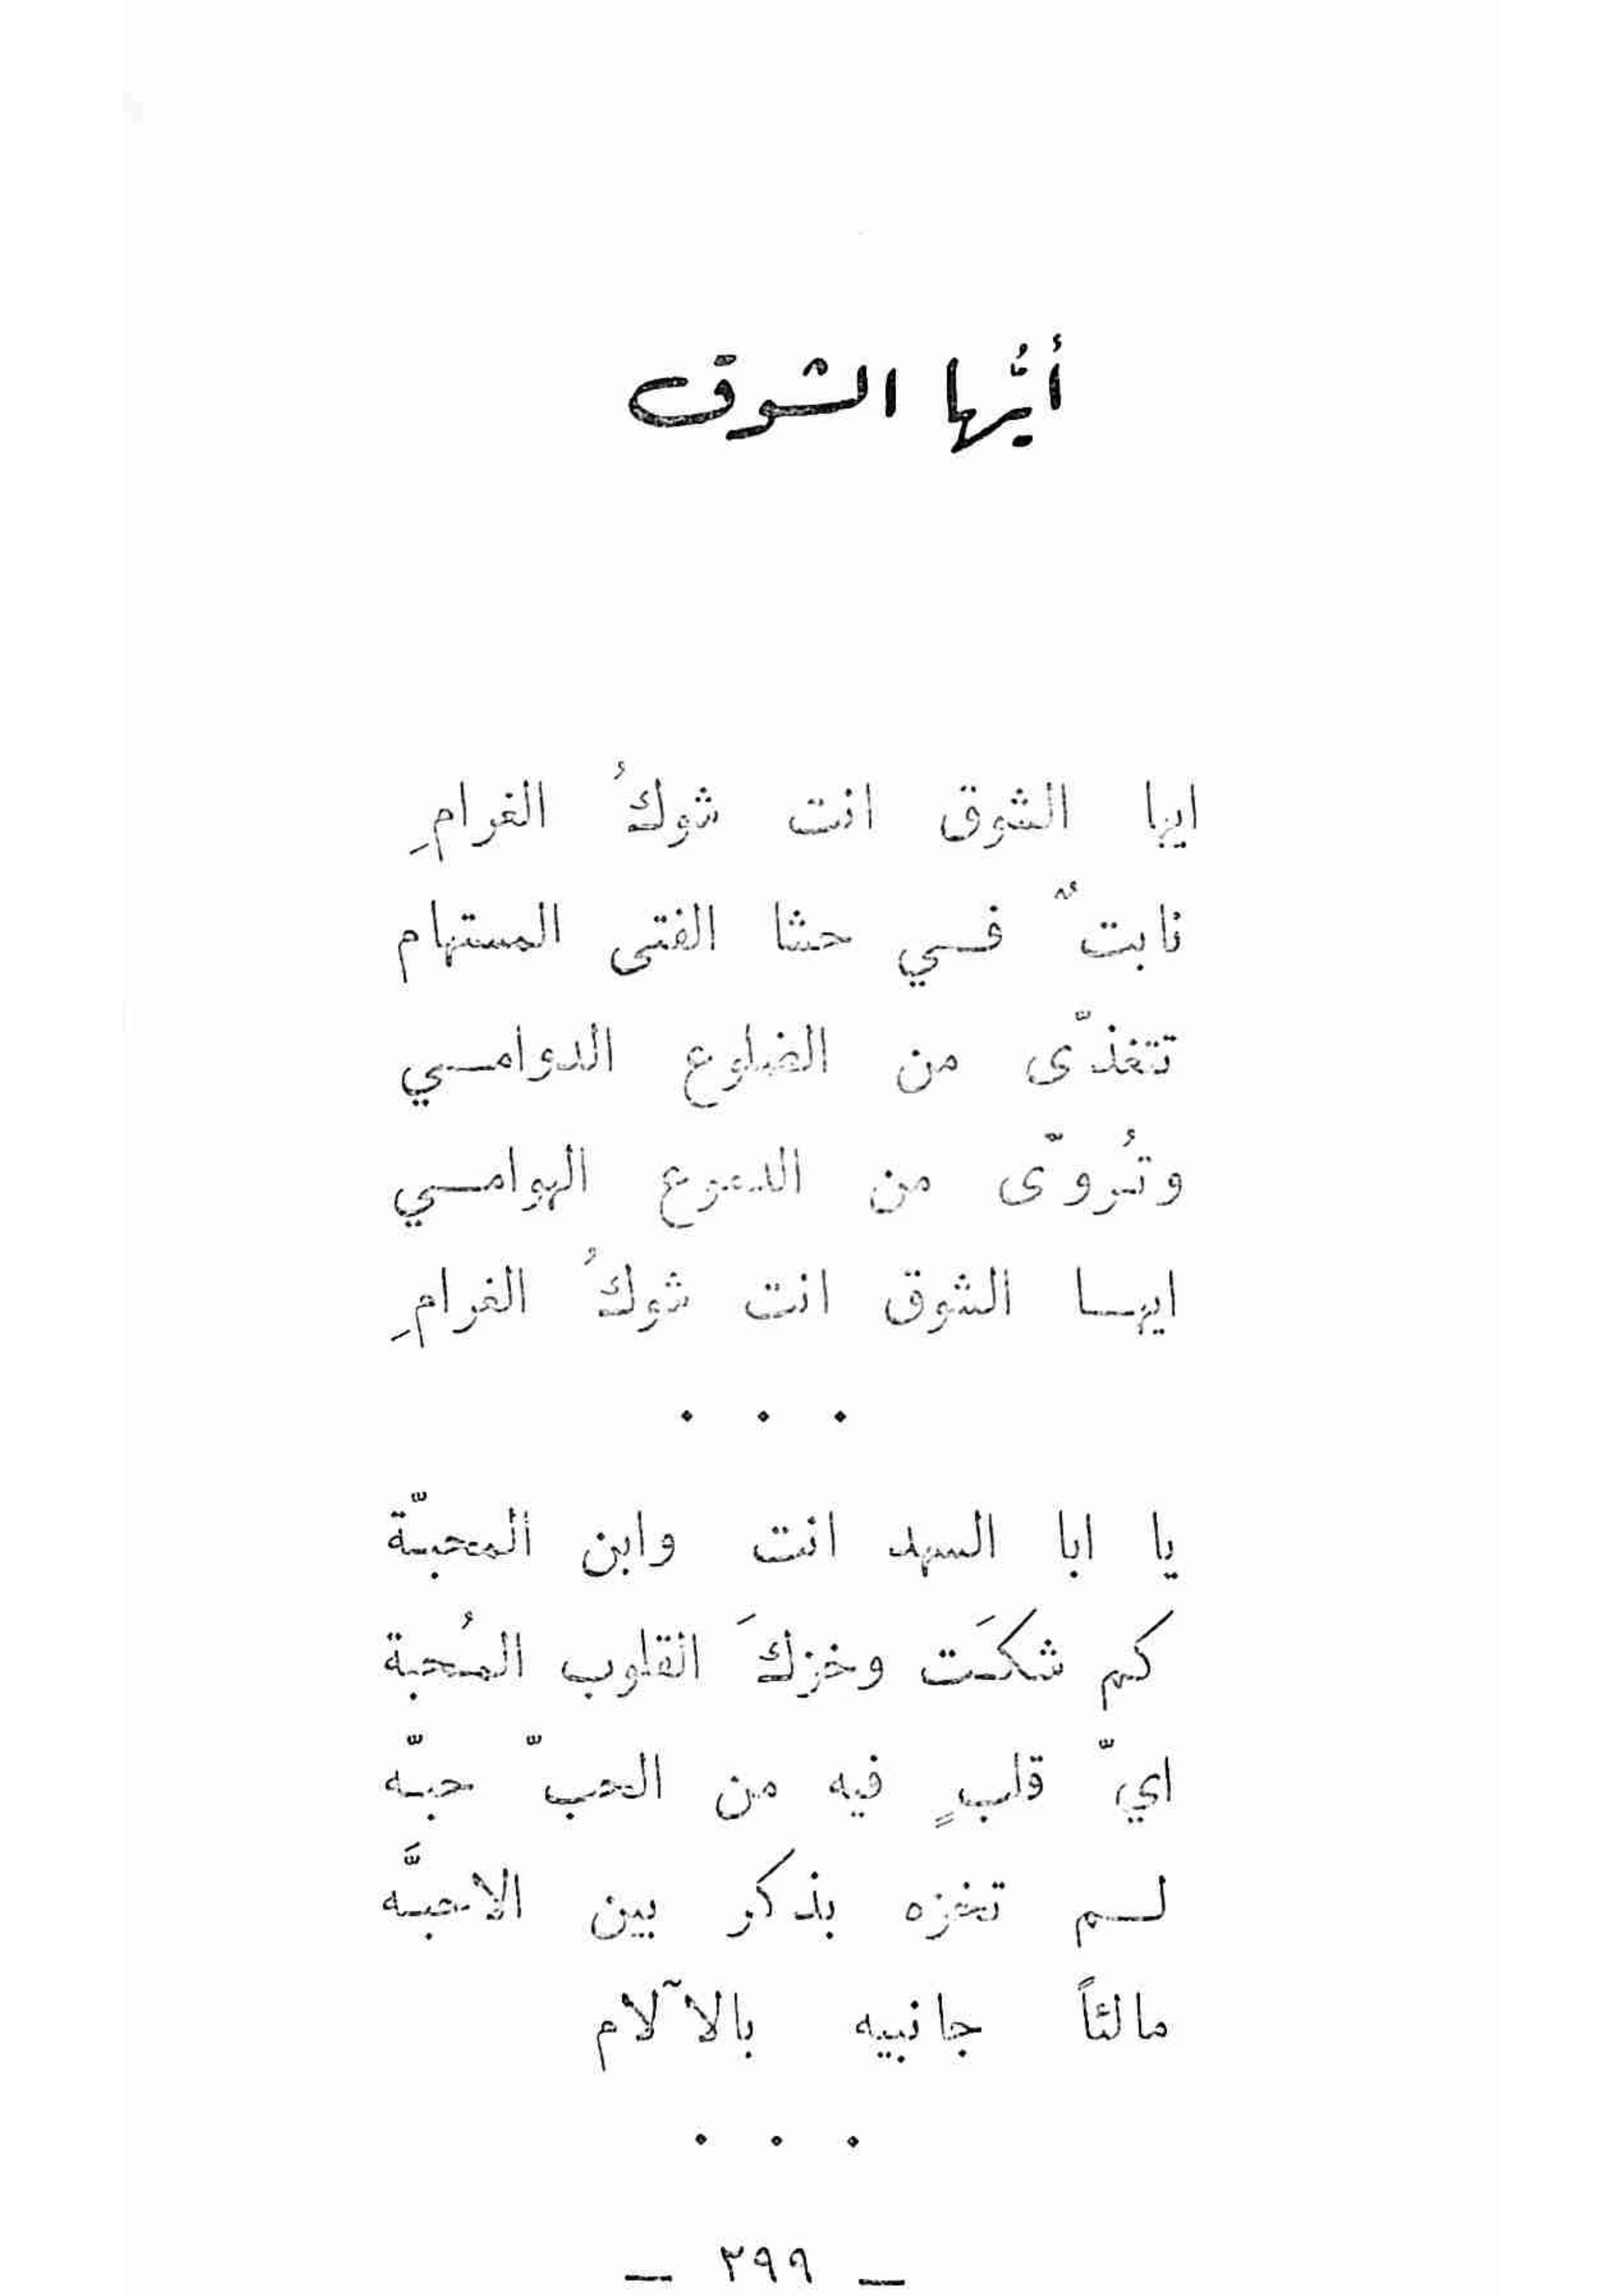 أيُّها الشوق
ايها الشوق انت شوكُ الغرامِ
نابتٌ فـي حشا الفتى المستهام
تتغذّى من الضلوع الدوامـي
وتُروّى من الدموع الهوامـي
ايهـا الشوق انت شوكُ الغرامِ
. . .
يا ابا السهد انت وابن المحبّة
كم شكَت وخزكَ القلوب المُحبة
ايّ قلبٍ فيه من الحبّ حبّه
لـم تخزه بذكر بين الاحبَّه
مالئاً جانبيه بالآلام
. . .
— ٣٩٩ —